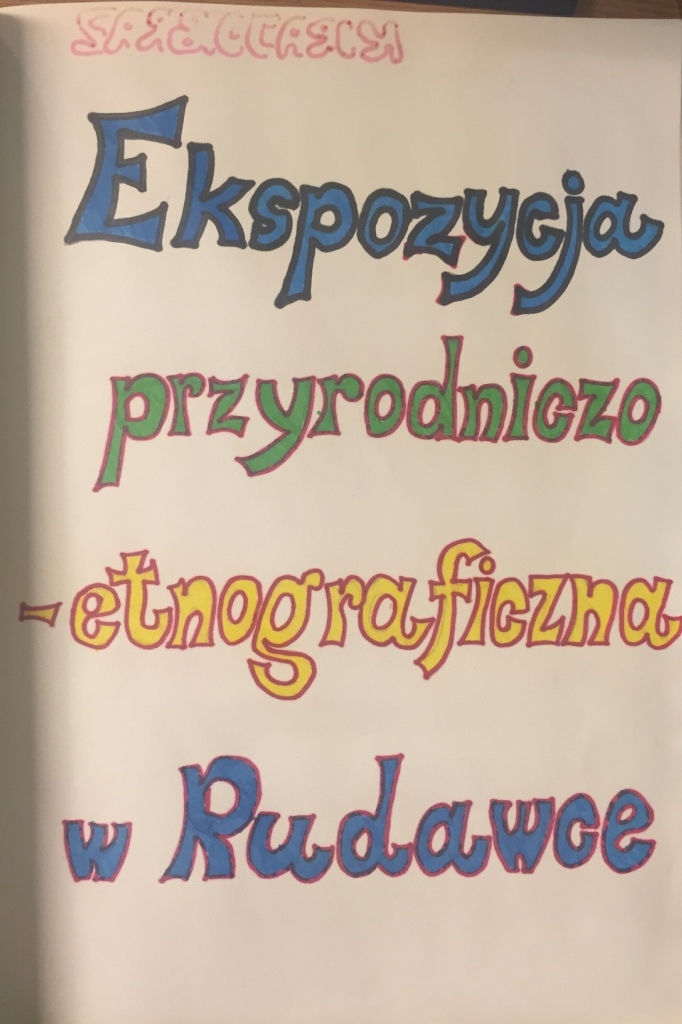 Ekspozycja
przyrodniczo
-etnograficzna
w Rudawce